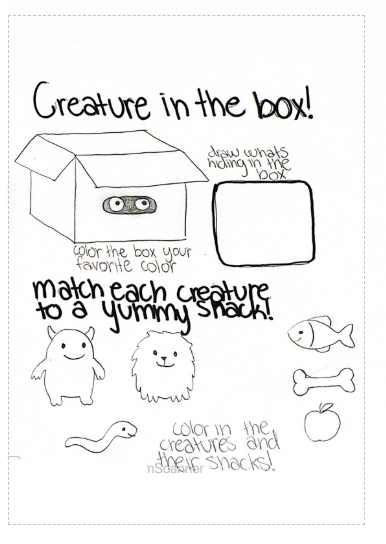 Creature in the box!
draw whats
hiding in the
box
color the box your
favorite color
match each creature
to a yummy snack!
color in the
creatures and
their snacks!
nScanner